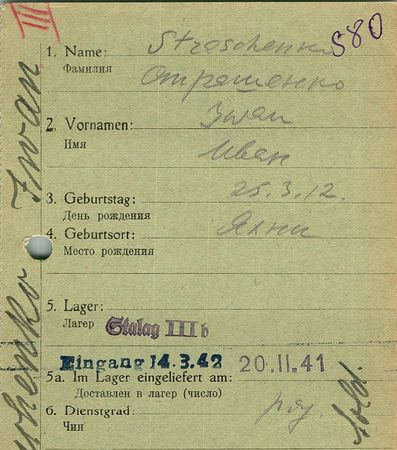 III
580
1. Name: Straschenko
Фамилия
Отрашенко
2. Vornamen: Iwan
Имя
Иван
3. Geburtstag: 25.3.12.
День рождения
4. Geburtsort: Яхни
Место рождения
5. Lager:
Лагер Stalag III b
Eingang 14.3.42 20.11.41
5a. Im Lager eingeliefert am:
Доставлен в лагер (число)
6. Dienstgrad: ряд.
Чин
Sold.
Iwan